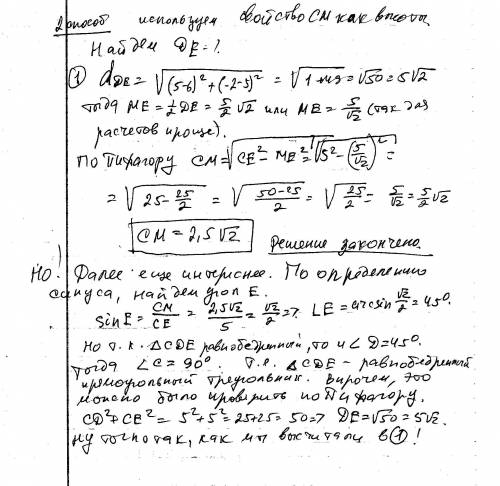 2 способ используем свойство CM как высоты.
Найдем DE = ?.
① d_DE = √((5-6)² + (-2-5)²) = √(1+49) = √50 = 5√2
тогда ME = ½ DE = 5/2 √2 или ME = 5/√2 (так для
расчетов проще).
По Пифагору CM = √(CE² - ME²) = √(5² - (5/√2)²) =
= √(25 - 25/2) = √((50-25)/2) = √(25/2) = 5/√2 = 5/2 √2
CM = 2,5√2 Решение закончено.
НО! Далее еще интереснее. По определению
синуса, найдем угол E.
sin E = CM/CE = 2,5√2/5 = √2/2 => ∠E = arcsin √2/2 = 45°.
Но т.к. △CDE равнобедренный, то и ∠D = 45°.
Тогда ∠C = 90°. Т.е. △CDE - равнобедренный
прямоугольный треугольник. Впрочем, это
можно было проверить по Пифагору.
CD² + CE² = 5² + 5² = 25 + 25 = 50 => DE = √50 = 5√2.
Ну точно так, как мы высчитали в ①!